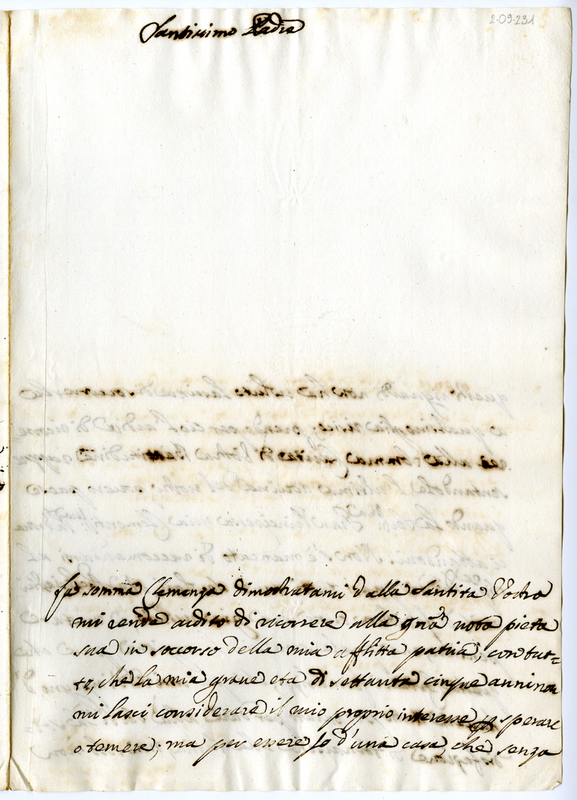 2-09-231
Santissimo Padre
La somma Clemenza dimostratami dalla Santità Vostra
mi rende ardito di ricorrere alla gnã nota pietà
sua in soccorso della mia afflitta patria, con tut-
to, che la mia grave età di settanta cinque anni non
mi lasci considerare il mio proprio interesse sperare
o temere; ma per essere Io d'una casa, che senza